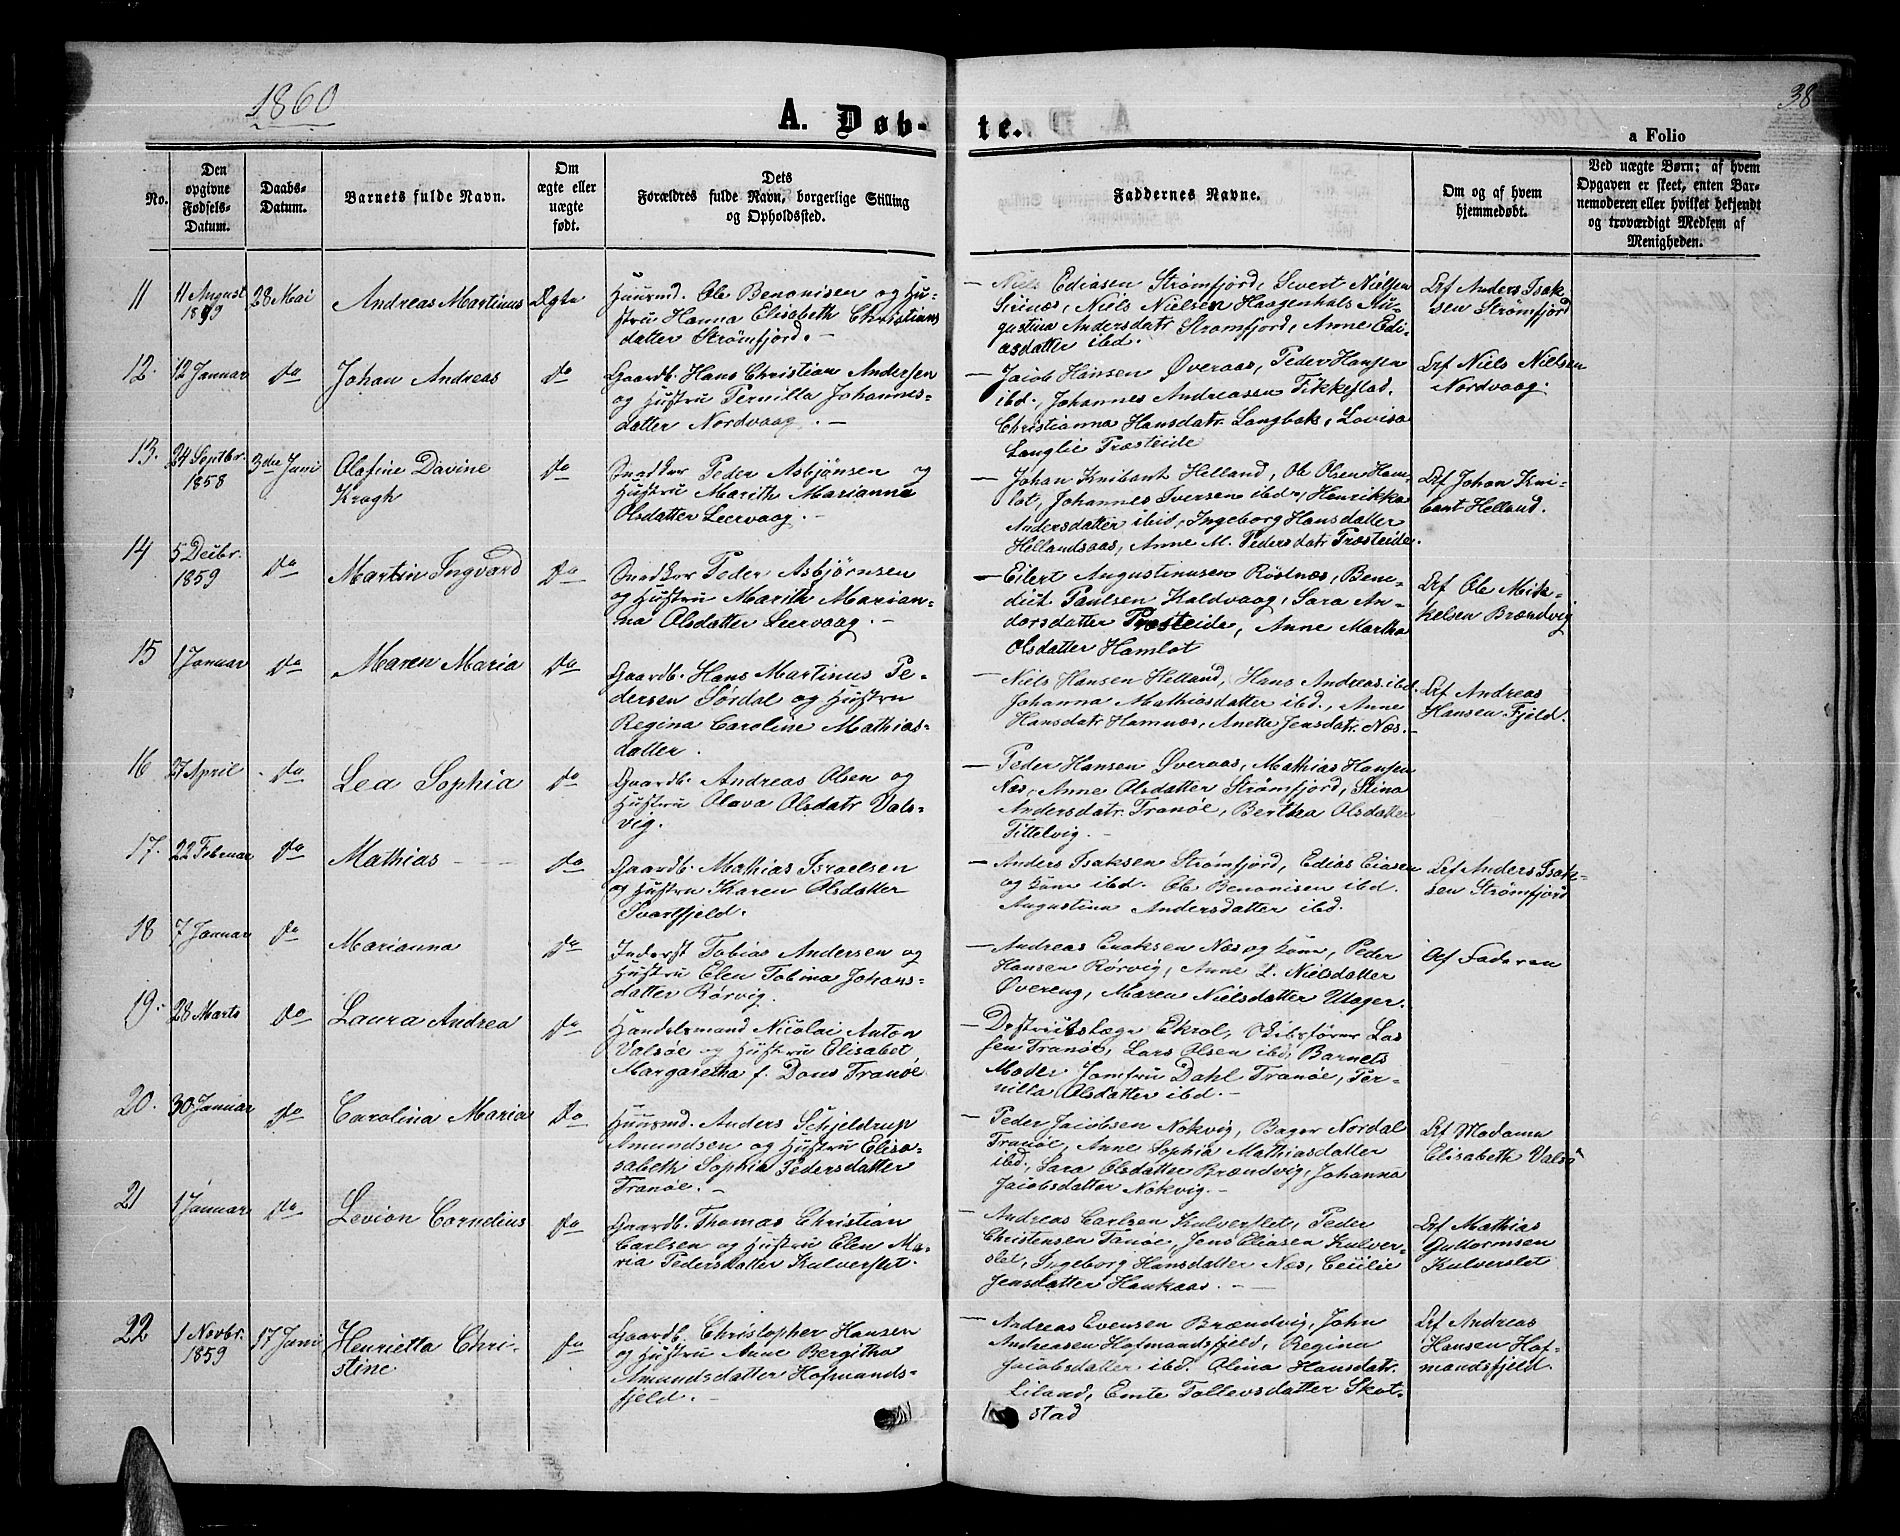 1860
38
A. Døb-
te.
a Folio
No.
Den
opgivne
Fødsels-
Datum.
Daabs-
Datum.
Barnets fulde Navn.
Om
ægte eller
uægte
født.
Dets
Forældres fulde Navn, borgerlige Stilling
og Opholdssted.
Faddernes Navne.
Om og af hvem
hjemmedøbt.
Ved uægte Børn; af hvem
Opgaven er skeet, enten Bar-
nemoderen eller hvilket bekjendt
og troværdigt Medlem af
Menigheden.
11
11 August
1859
28 Mai
Andreas Martinus
Ægte
Huusmd. Ole Benonisen og Hu-
stru Hanna Elisabeth Christians
datter Strømfjord. -
- Niels Ediasen Strømfjord, Sivert Nielsen
Niels Nielsen Haagenhals Au-
gustina Andersdatr Strømfjord, Anne Edi-
asdatter ibd.
Af Anders Isak-
sen Strømfjord
12.
12 Januar
do
Johan Andreas
do
Gaardb. Hans Christian Andersen
og Hustru Pernilla Johannes-
datter Nordvaag. -
- Jacob Hansen Øveraas, Peder Hansen
ibd., Johannes Andreassen Fikkestad,
Christianna Hansdatr. Langbak, Lovisa
Langlie Præsteide
Af Niels Nielsen
Nordvaag.
13.
24 Septbr.
1858
3die Juni
Olafine Davine
Kragh
do
Peder Asbjønsen og
Hustru Marith Marianna
Olsdatter Leervaag. -
- Johan Knibant Helland, Ole Olsen Ham-
lot, Johannes Iversen ibd., Henrikka
Andersdatter ibid, Ingeborg Hansdatter
Hellandsaas, Anne M. Pedersdatr Præsteide.
Af Johan Kni-
bant Helland.
14
5 Decbr.
1859
do
Martin Ingvard
do
Peder Asbjørnsen
og Hustru Marith Marian-
na Olsdatter Leervaag. -
- Eilert Augustinusen Røstnæs, Bene-
dict Paulsen Kaldvaag, Sara An-
dersdatter Præsteide, Anne Martha
Olsdatter Hamlot
Af Ole Mik-
kelsen Brændvig
15
1 Januar
do
Maren Maria
do
Gaardb. Hans Martinus Pe-
dersen Sørdal og Hustru
Regina Caroline Mathias-
datter.
- Niels Hansen Helland, Hans Andreas. ibd.
Johanna Mathiasdatter ibd., Anne
Hansdatr Hamnæs, Anette Jensdatr. Næs. -
Af Andreas
Hansen Fjeld.
16
27 April
do
Lea Sophia
do
Gaardb. Andreas Olsen og
Hustru Olava Olsdatr Vals-
vig.
- Peder Hansen Øveraas, Mathias Hansen
Næs, Anne Olsdatter Strømfjord, Stina
Andersdatr. Tranøe, Bertha Olsdatter
Tittelvig. -
17.
22 Februar
do
Mathias
do
Gaardb. Mathias Israelsen
og Hustru Karen Olsdatter
Svartfjeld.
- Anders Isaksen Strømfjord, Edias Eiasen
og kone ibd. Ole Benonisen ibd.
Augustina Andersdatter ibd.
Af Anders Isak-
sen Strømfjord
18
7 Januar
do
Marianna
do
Inderst Tobias Andersen og
Hustru Elen Tobina Johans-
datter Rørvig.
- Andreas Enoksen Næs og kone, Peder
Hansen Rørvig, Anne L. Nielsdatter
Øvereng, Maren Nielsdatter Utager.
Af Faderen
19.
28 Marts
do
Laura Andrea
do
Handelsmand Nicolai Anton
Valsøe og Hustru Elisabet
Margaretha f. Dons Tranøe
- Destriktslæge Ekrol, Kirkesanger Las-
sen Tranøe, Lars Olsen ibd, Barnets
Moder, Jomfru Dahl Tranøe, Per-
nilla Olsdatter ibd. -
20.
30 Januar
do
Carolina Maria
do
Huusmd. Anders Schjeldrup
Amundsen og Hustru Elisa-
sabeth Sophia Pedersdatter
Tranøe. -
- Peder Jacobsen Nokvig, Bager Nordal
Tranøe, Anne Sophia Mathiasdatter
ibd., Sara Olsdatter Brændvig, Johanna
Jacobsdatter Nokvig. -
Af Madame
Elisabeth Valsø
21
1 Januar
do
Levion Cornelius
do
Gaardb. Thomas Christian
Carlsen og Hustru Elen Ma-
ria Pedersdatter Kulverslet.
- Andreas Carlsen Kulverslet, Peder
Christensen Tanøe, Jens Eliasen Kulver-
slet, Ingeborg Hansdatter Næs, Cecilie
Jensdatter Haukaas. -
Af Mathias
Guttormsen
Kulverslet
22
1 Novbr.
1859
17 Juni
Henrietta Chri-
stine
do
Gaardb. Christopher Hansen
og Hustru Anne Bergitha
Amundsdatter Hofmands-
fjeld. -
- Andreas Evensen Brændvig, John
Andreasen Hofmandsfjeld, Regina
Jacobsdatter ibd. Olina Hansdatr.
Liland, Emte Tollevsdatter Skot-
stad
Af Andreas
Hansen Hof-
mandsfjeld.